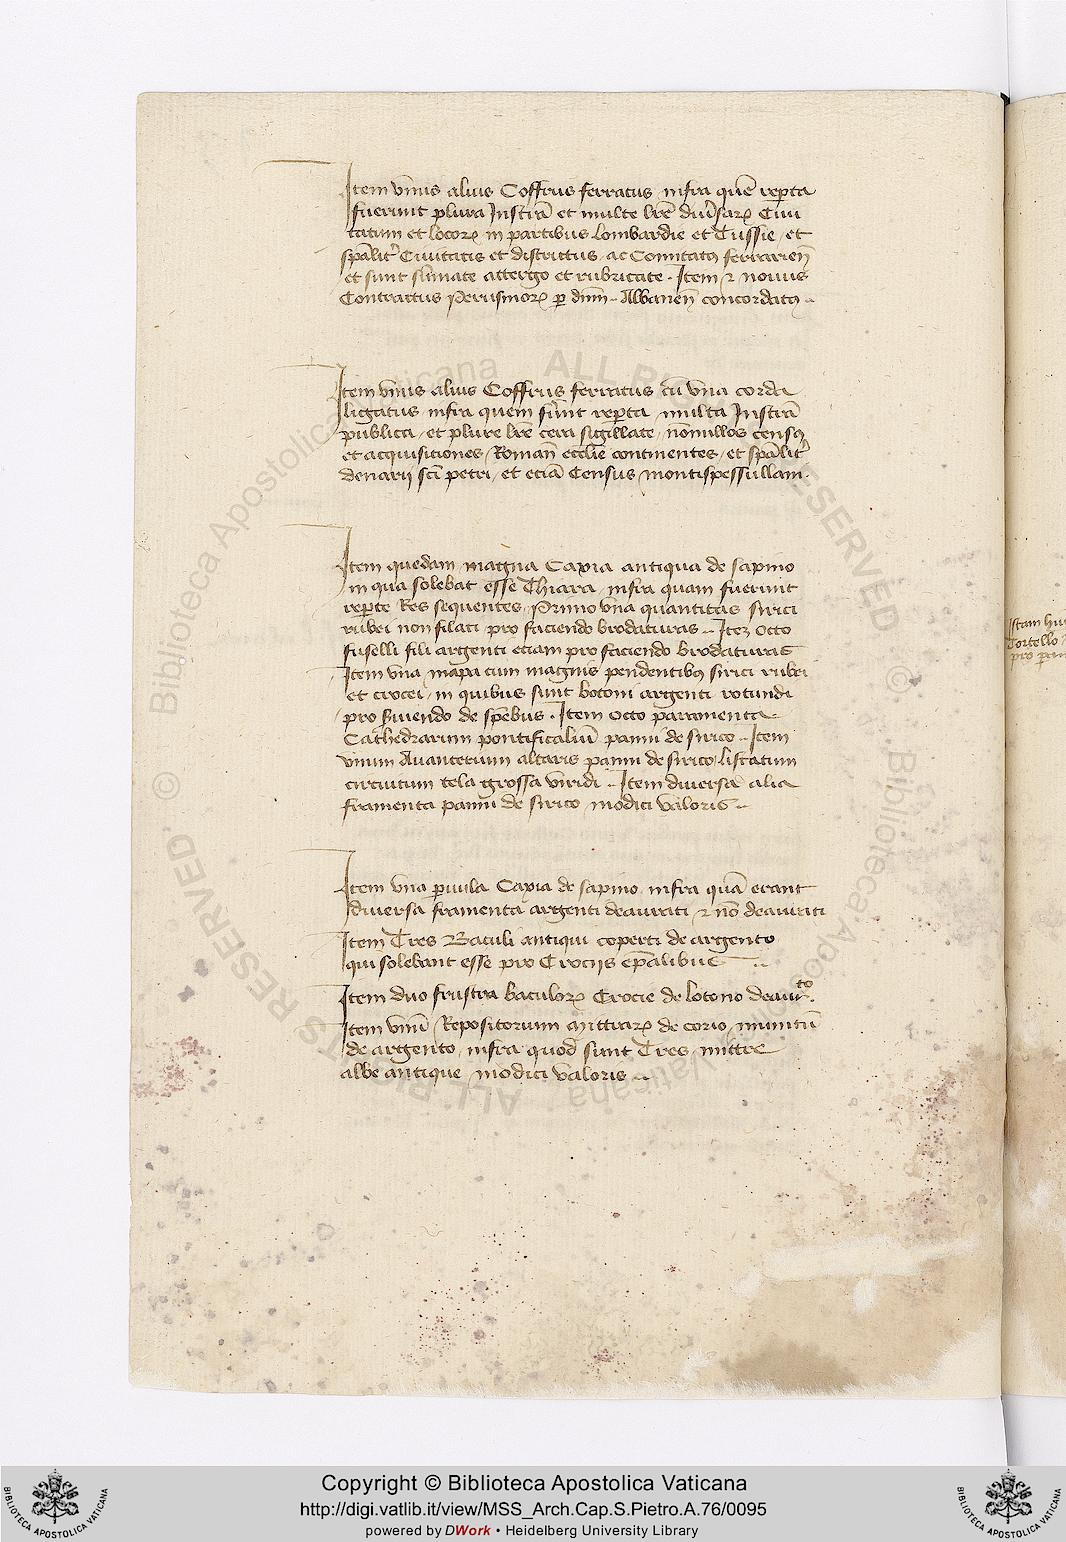 Item vnus alius Coffrus ferratus infra quē rep̄ta
fuerunt plura Instrā et multe lr̄e diu̾saꝝ Ciui
tatum et locoꝝ in partibus lombardie et Tussie et
sp̄alit̾ Ciuitatis et districtus ac Comitatꝰ ferrarien̄
et sunt sūmate attergo et rubricate . Item ⁊ nouus
Contractus Perusinoꝝ ꝑ dnm̄ .. Albanen̄ concordatꝰ ..
Item vnus alius Coffrus ferratus cū vna corda
ligatus infra quem fūnt rep̄ta multa Instrā
publica et plure lr̄e cera sigillate nōnullos censꝰ
et acquisitiones Roman̄ ecclie continentes et sp̄alit̾
denarij sc̄i petri et eciā Census montispessullam.
Item quedam magna Capia antiqua de sapino
in qua solebat esse Thiara infra quam fuerunt
rep̄te Res sequentes Primo vna quantitas sirici
rubei non filati pro faciendo brodaturas .. Iteꝫ octo
fuselli fili argenti etiam pro faciendo brodaturas
Item vna mapa cum magnis pendentibꝰ sirici rubei
et crocei in quibus sunt botoni argenti rotundi
pro s̾uiendo de sp̄ebus . Item octo paramenta
Cathedrarum pontificaliū panni de sirico .. Item
vnum Auantetum altaris panni de sirico listatum
circuitum tela grossa viridi .. Item diuersa alia
framenta panni de sirico modici valoris ..
Item vna ꝑuula Capia de sapino infra quā erant
diuersa framenta argenti deaurati ⁊ nō deaurati
Item Tres Baculi antiqui coperti de argento
qui solebant esse pro Crocijs ep̄alibus ..
Item duo frustra baculoꝝ Crocie de lotono deaur̄to.
Item vnū Repositorium Mittraꝝ de corio munitū
de argento infra quod sunt Tres mittre
albe antique modici valoris ..
Istam
Tortello
pro
Copyright © Biblioteca Apostolica Vaticana
http://digi.vatlib.it/view/MSS_Arch.Cap.S.Pietro.A.76/0095
powered by DWork • Heidelberg University Library
BIBLIOTECA APOSTOLICA VATICANA
BIBLIOTECA APOSTOLICA VATICANA
© Biblioteca Apostolica Vaticana ALL RIGHTS RESERVED
© Biblioteca Apostolica Vaticana ALL RIGHTS RESERVED